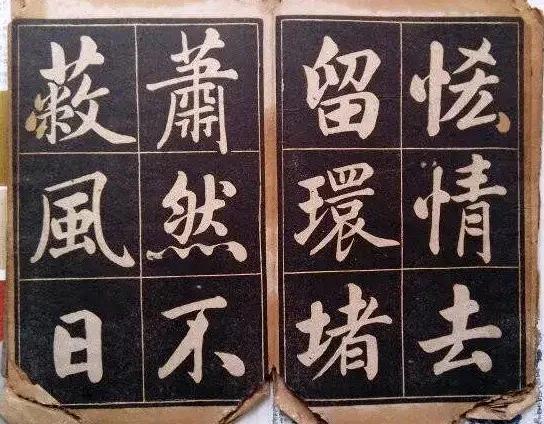 恡情去
留環堵
蕭然不
蔽風日